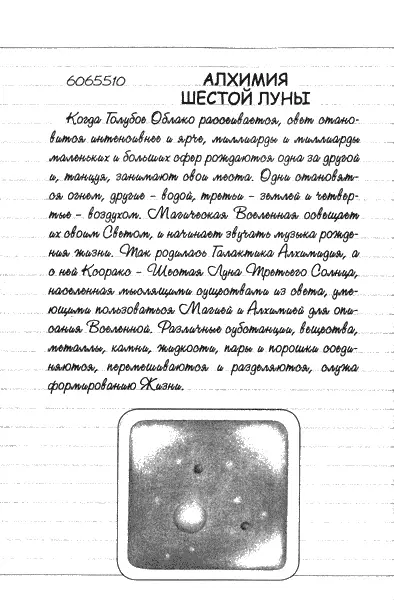 6065510
АЛХИМИЯ
ШЕСТОЙ ЛУНЫ
Когда Голубое Облако рассеивается, свет стано-
вится интенсивнее и ярче, миллиарды и миллиарды
маленьких и больших сфер рождаются одна за другой
и, танцуя, занимают свои места. Одни становят-
ся огнем, другие – водой, третьи – землей и четвер-
тые – воздухом. Магическая Вселенная освещает
их своим Светом, и начинает звучать музыка рожде-
ния жизни. Так родилась Галактика Алхимидия, а
с ней Ксоракс – Шестая Луна Третьего Солнца,
населенная мыслящими существами из света, уме-
ющими пользоваться Магией и Алхимией для опи-
сания Вселенной. Различные субстанции, вещества,
металлы, камни, жидкости, пары и порошки соеди-
няются, перемешиваются и разделяются, служа
формированию Жизни.